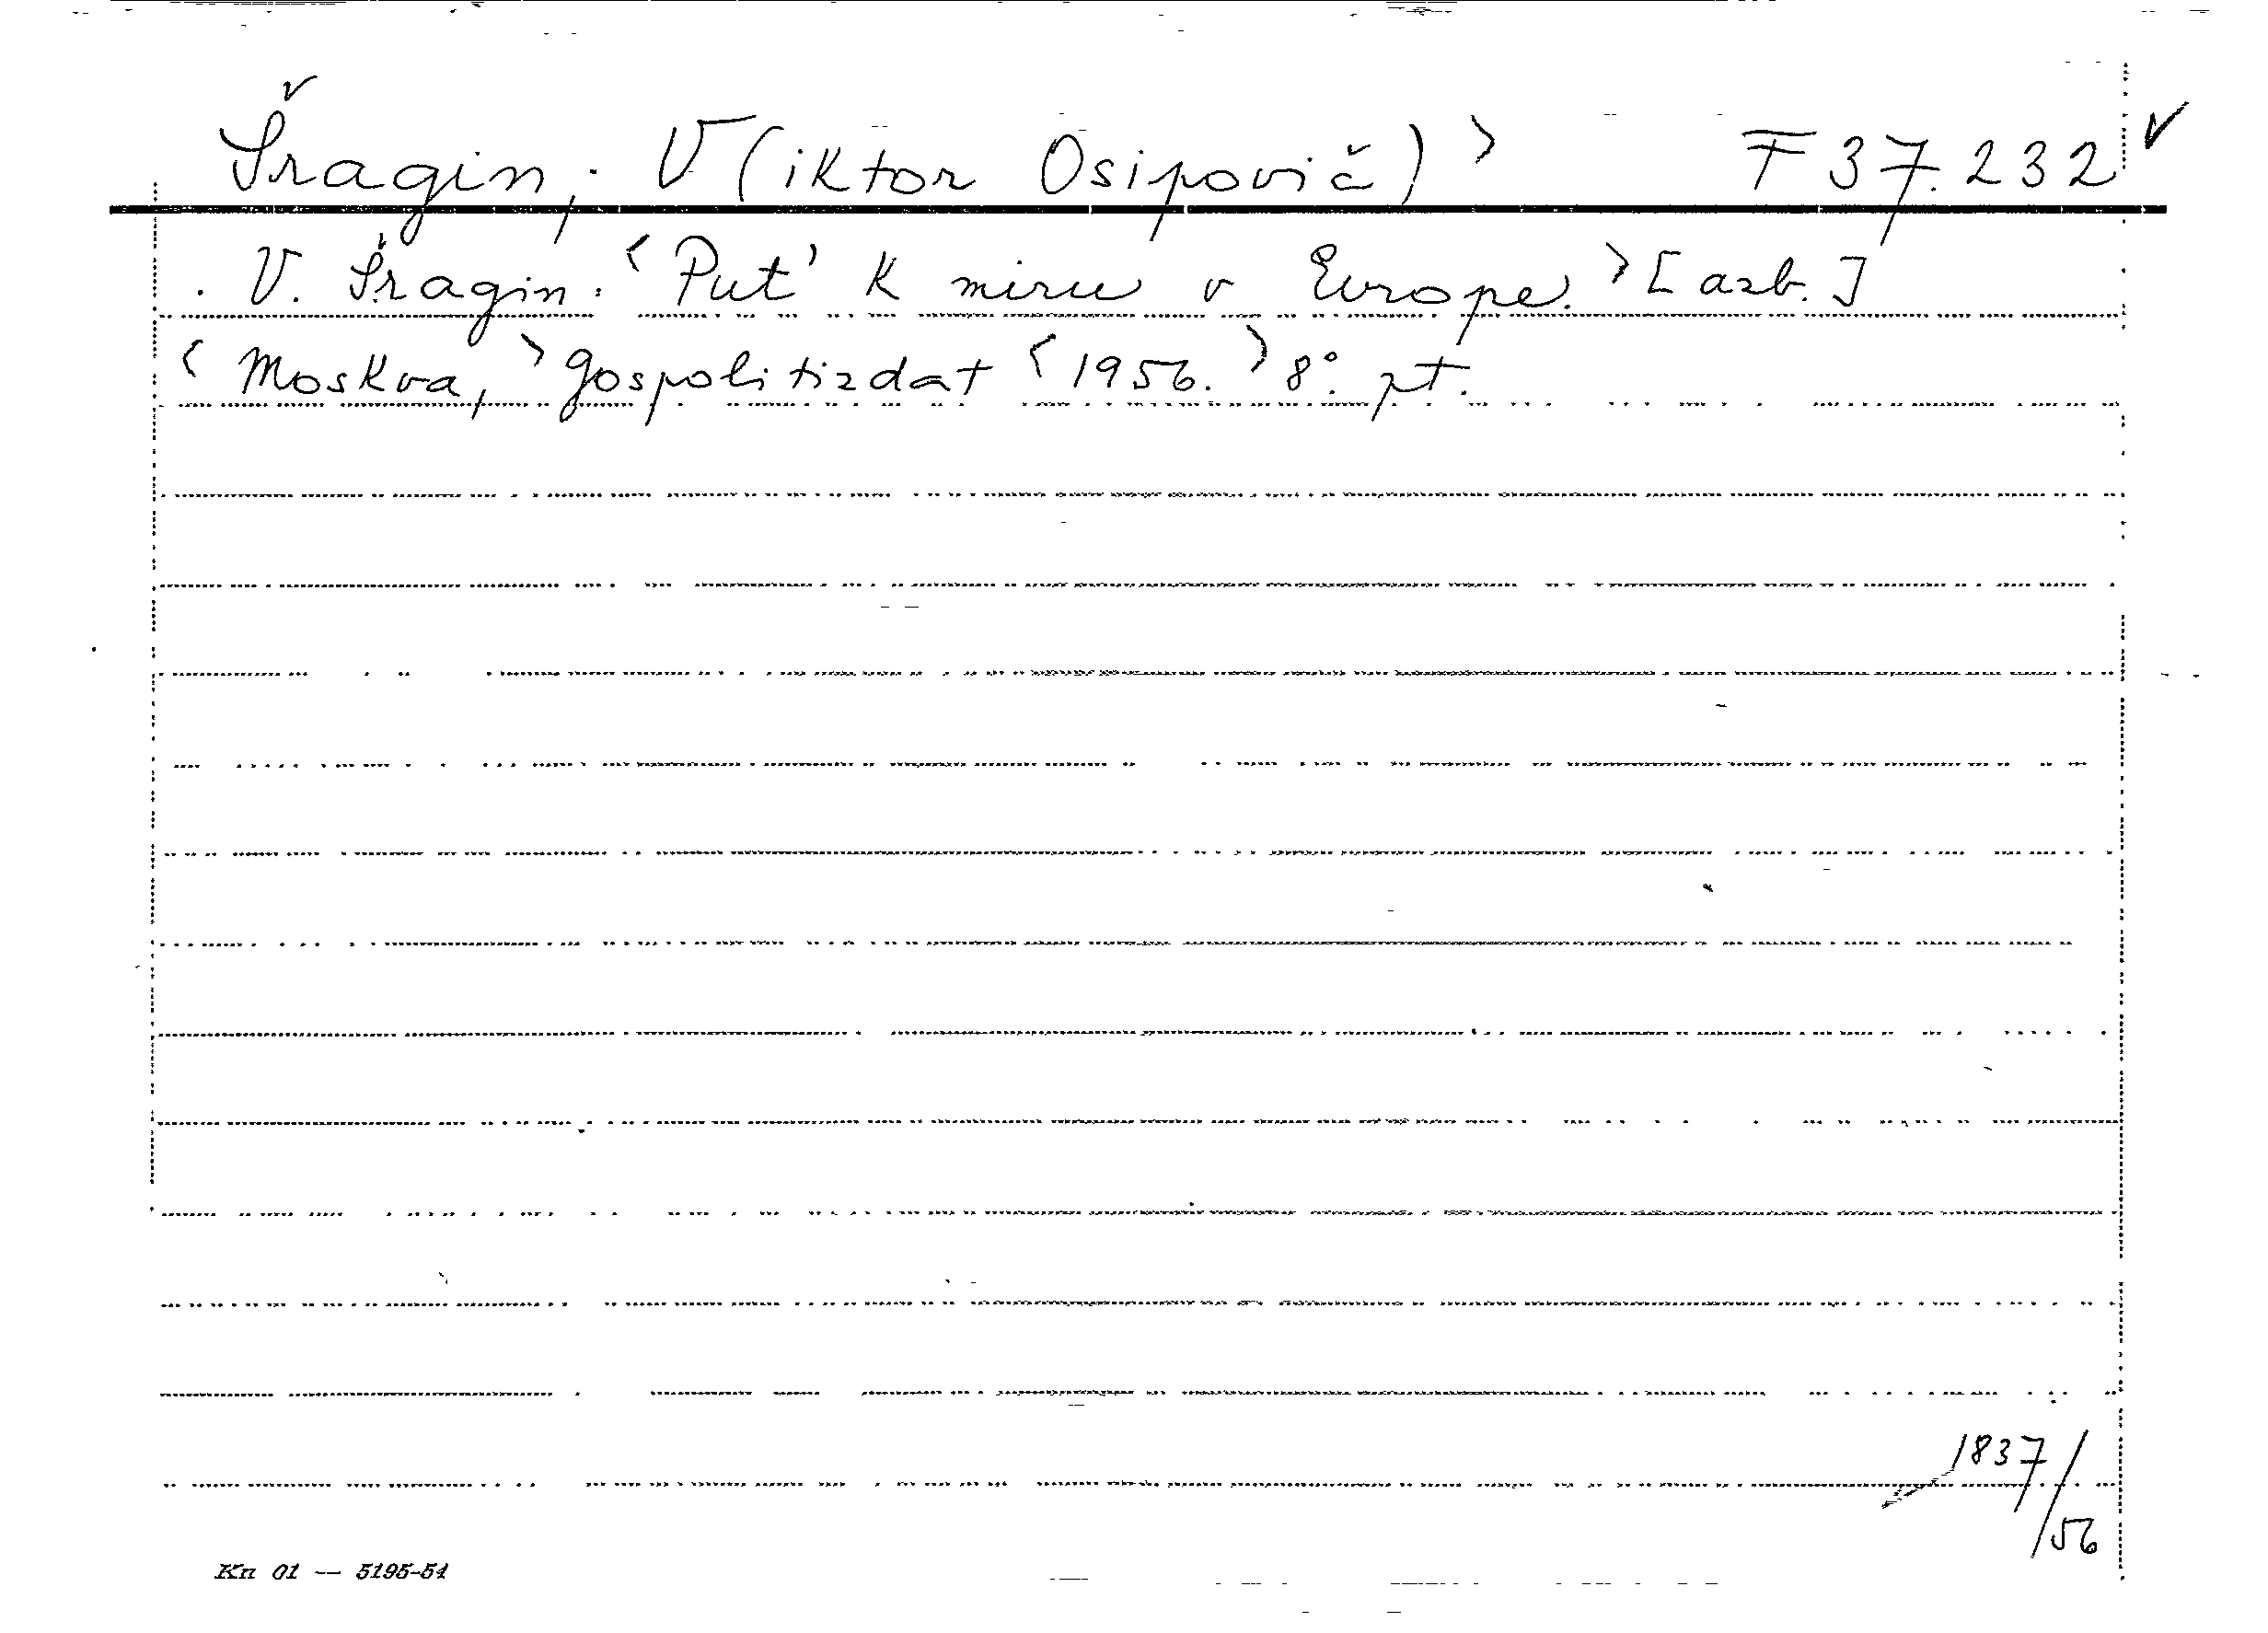 Šragin, V(iktor Osipovič) > F 37.232 v
. V. Šragin. < Put' k miru v Evrope. > [azb.]
< Moskva, > Gospolitizdat < 1956. > 8°. pt.
1837/56
Kn 01 — 5195-54